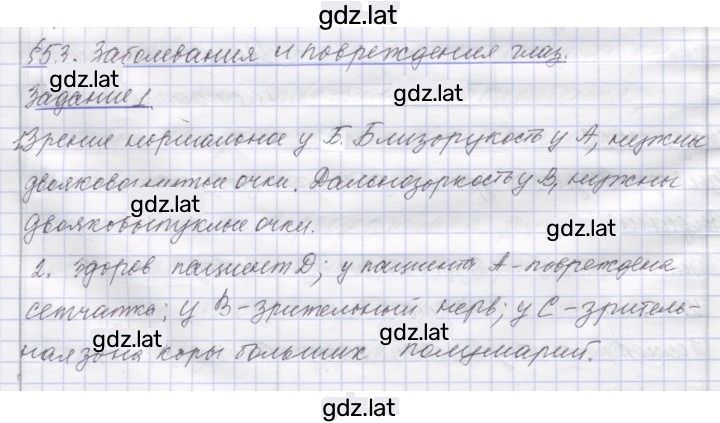 gdz.lat
§53. Заболевания и повреждения глаз.
gdz.lat
Задание 1.
gdz.lat
Зрение нормальное у Б. Близорукость у А, нужны
двояковогнутые очки. Дальнозоркость у В, нужны
gdz.lat
двояковыпуклые очки.
gdz.lat
2. Здоров пациент D; у пациента А - повреждена
сетчатка; у В - зрительный нерв; у С - зритель-
gdz.lat
gdz.lat
ная зона коры больших полушарий.
gdz.lat